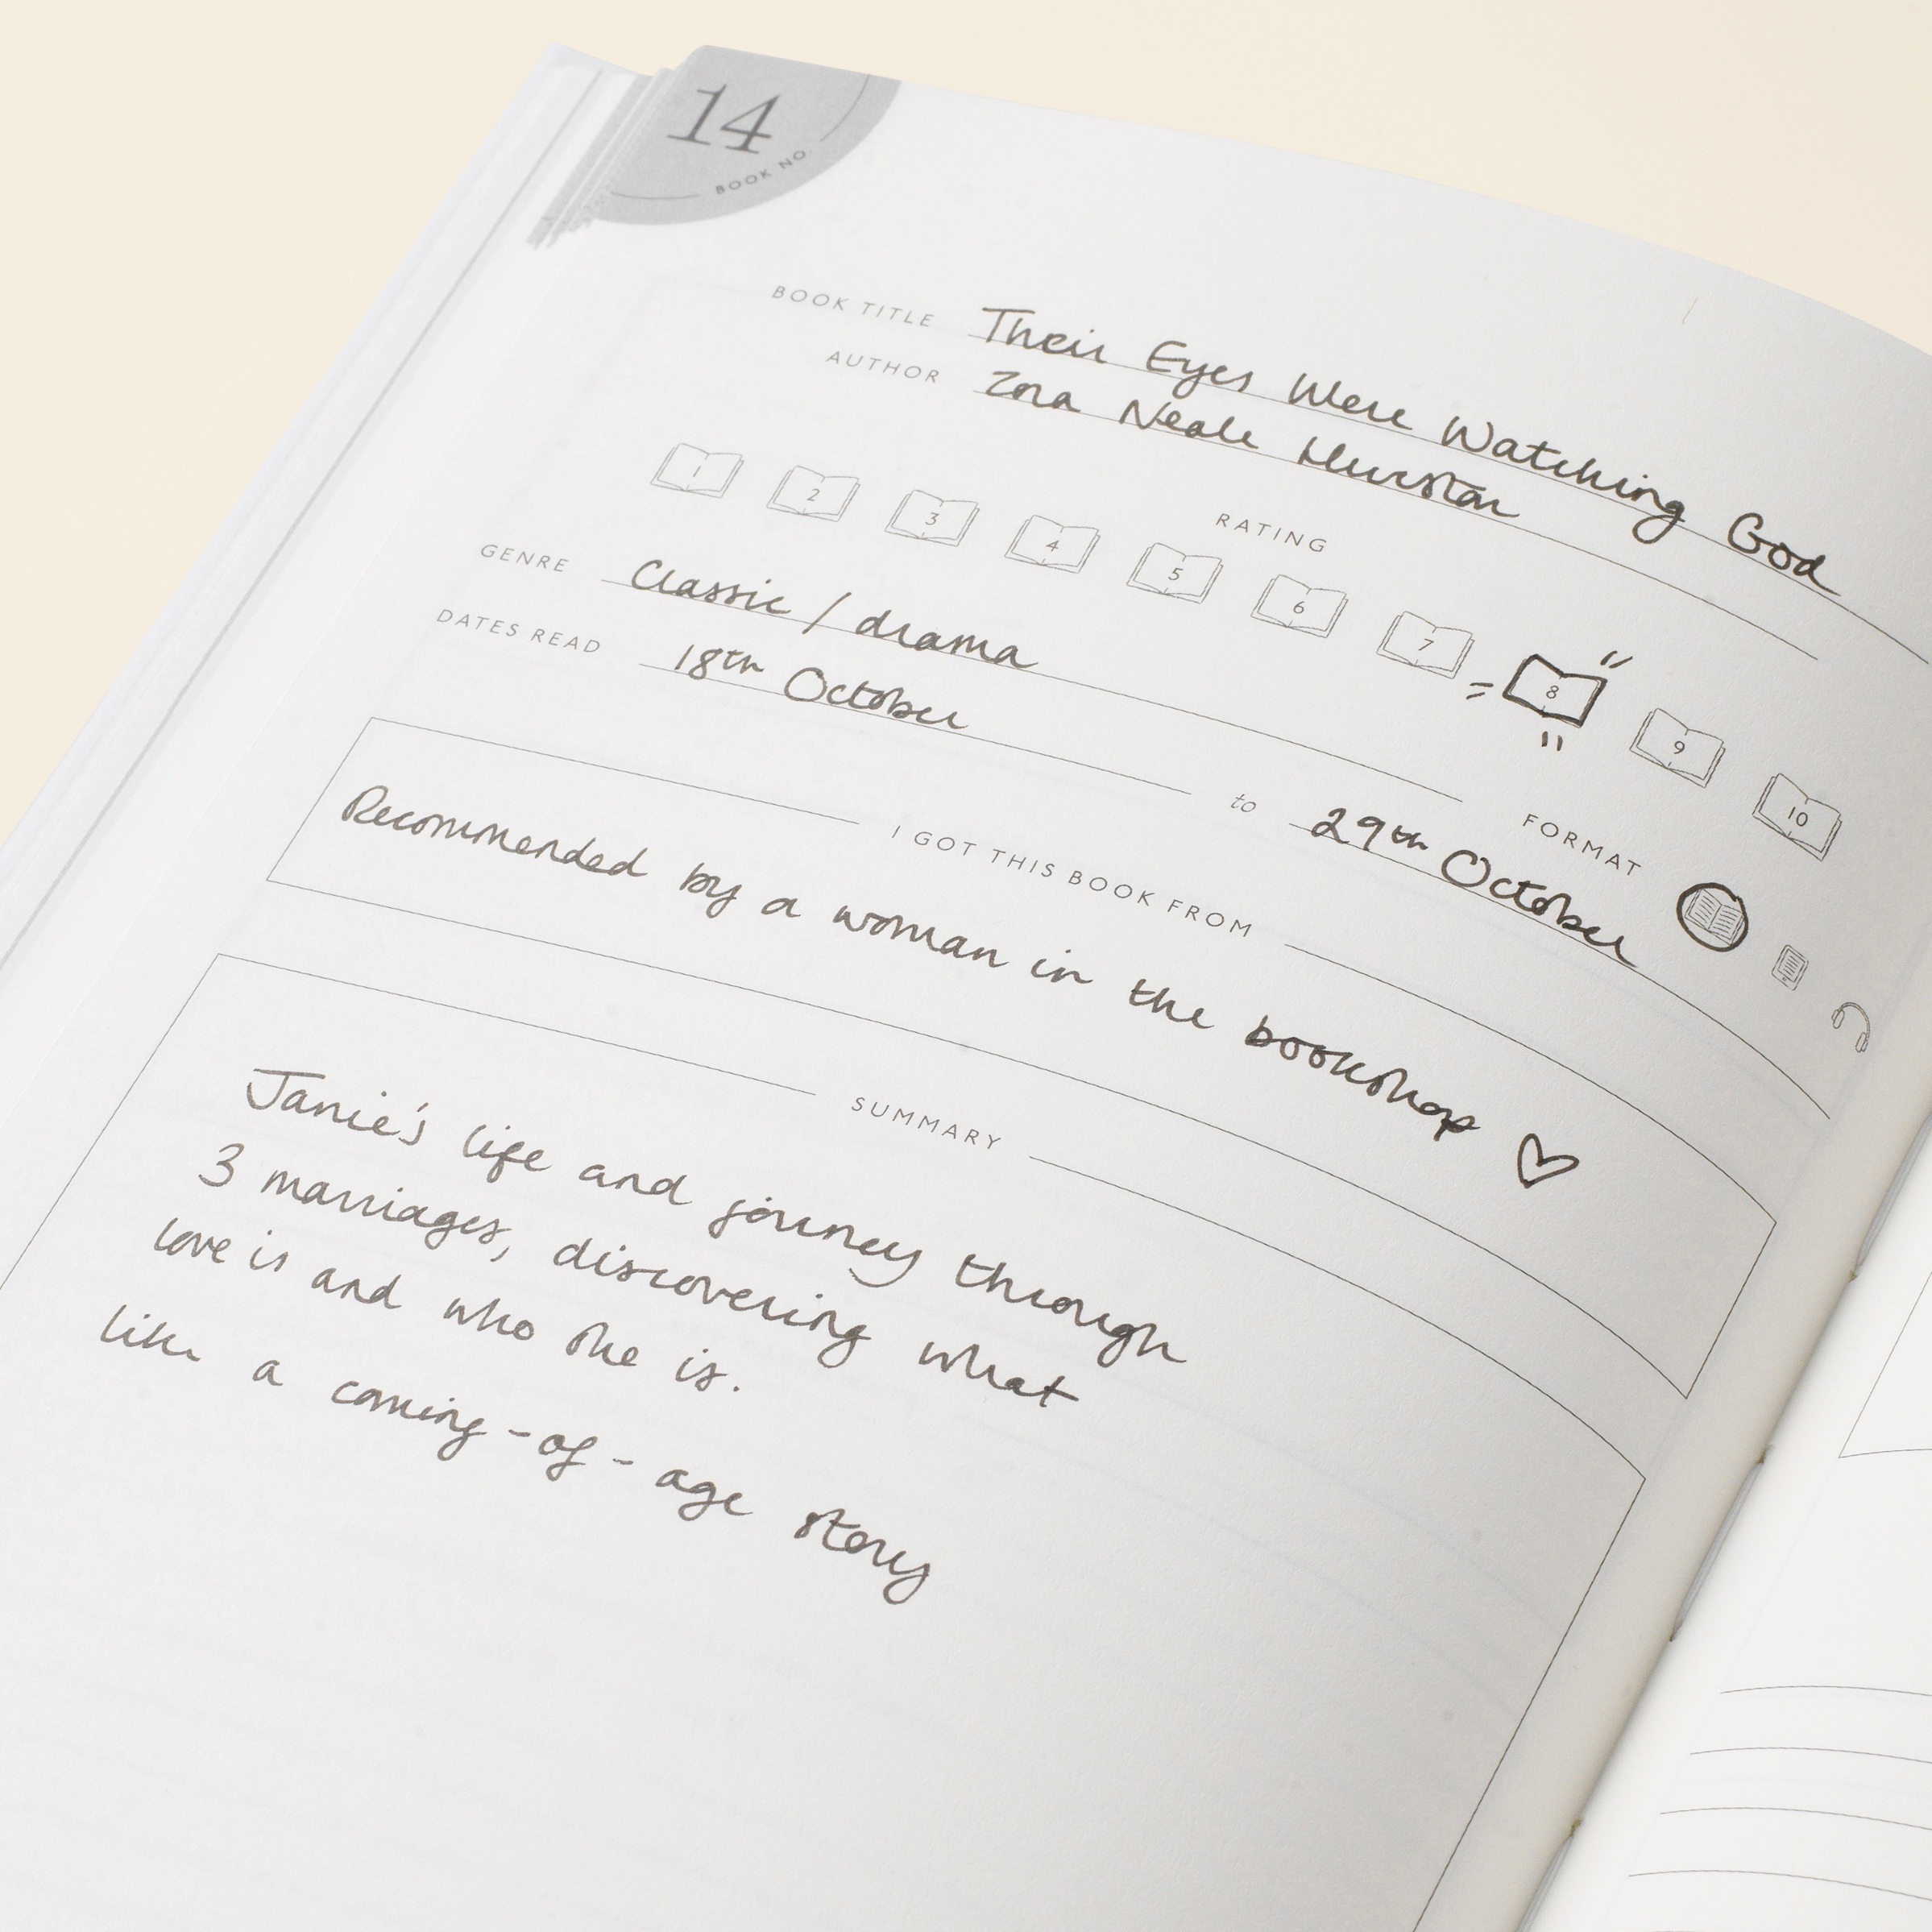 14
BOOK NO.
BOOK TITLE Their Eyes Were Watching God
AUTHOR Zora Neale Hurston
RATING
1 2 3 4 5 6 7 8 9 10
GENRE Classic / drama
FORMAT
DATES READ 18th October to 29th October
I GOT THIS BOOK FROM
Recommended by a woman in the bookshop ♡
SUMMARY
Janie's life and journey through
3 marriages, discovering what
love is and who she is.
like a coming-of-age story